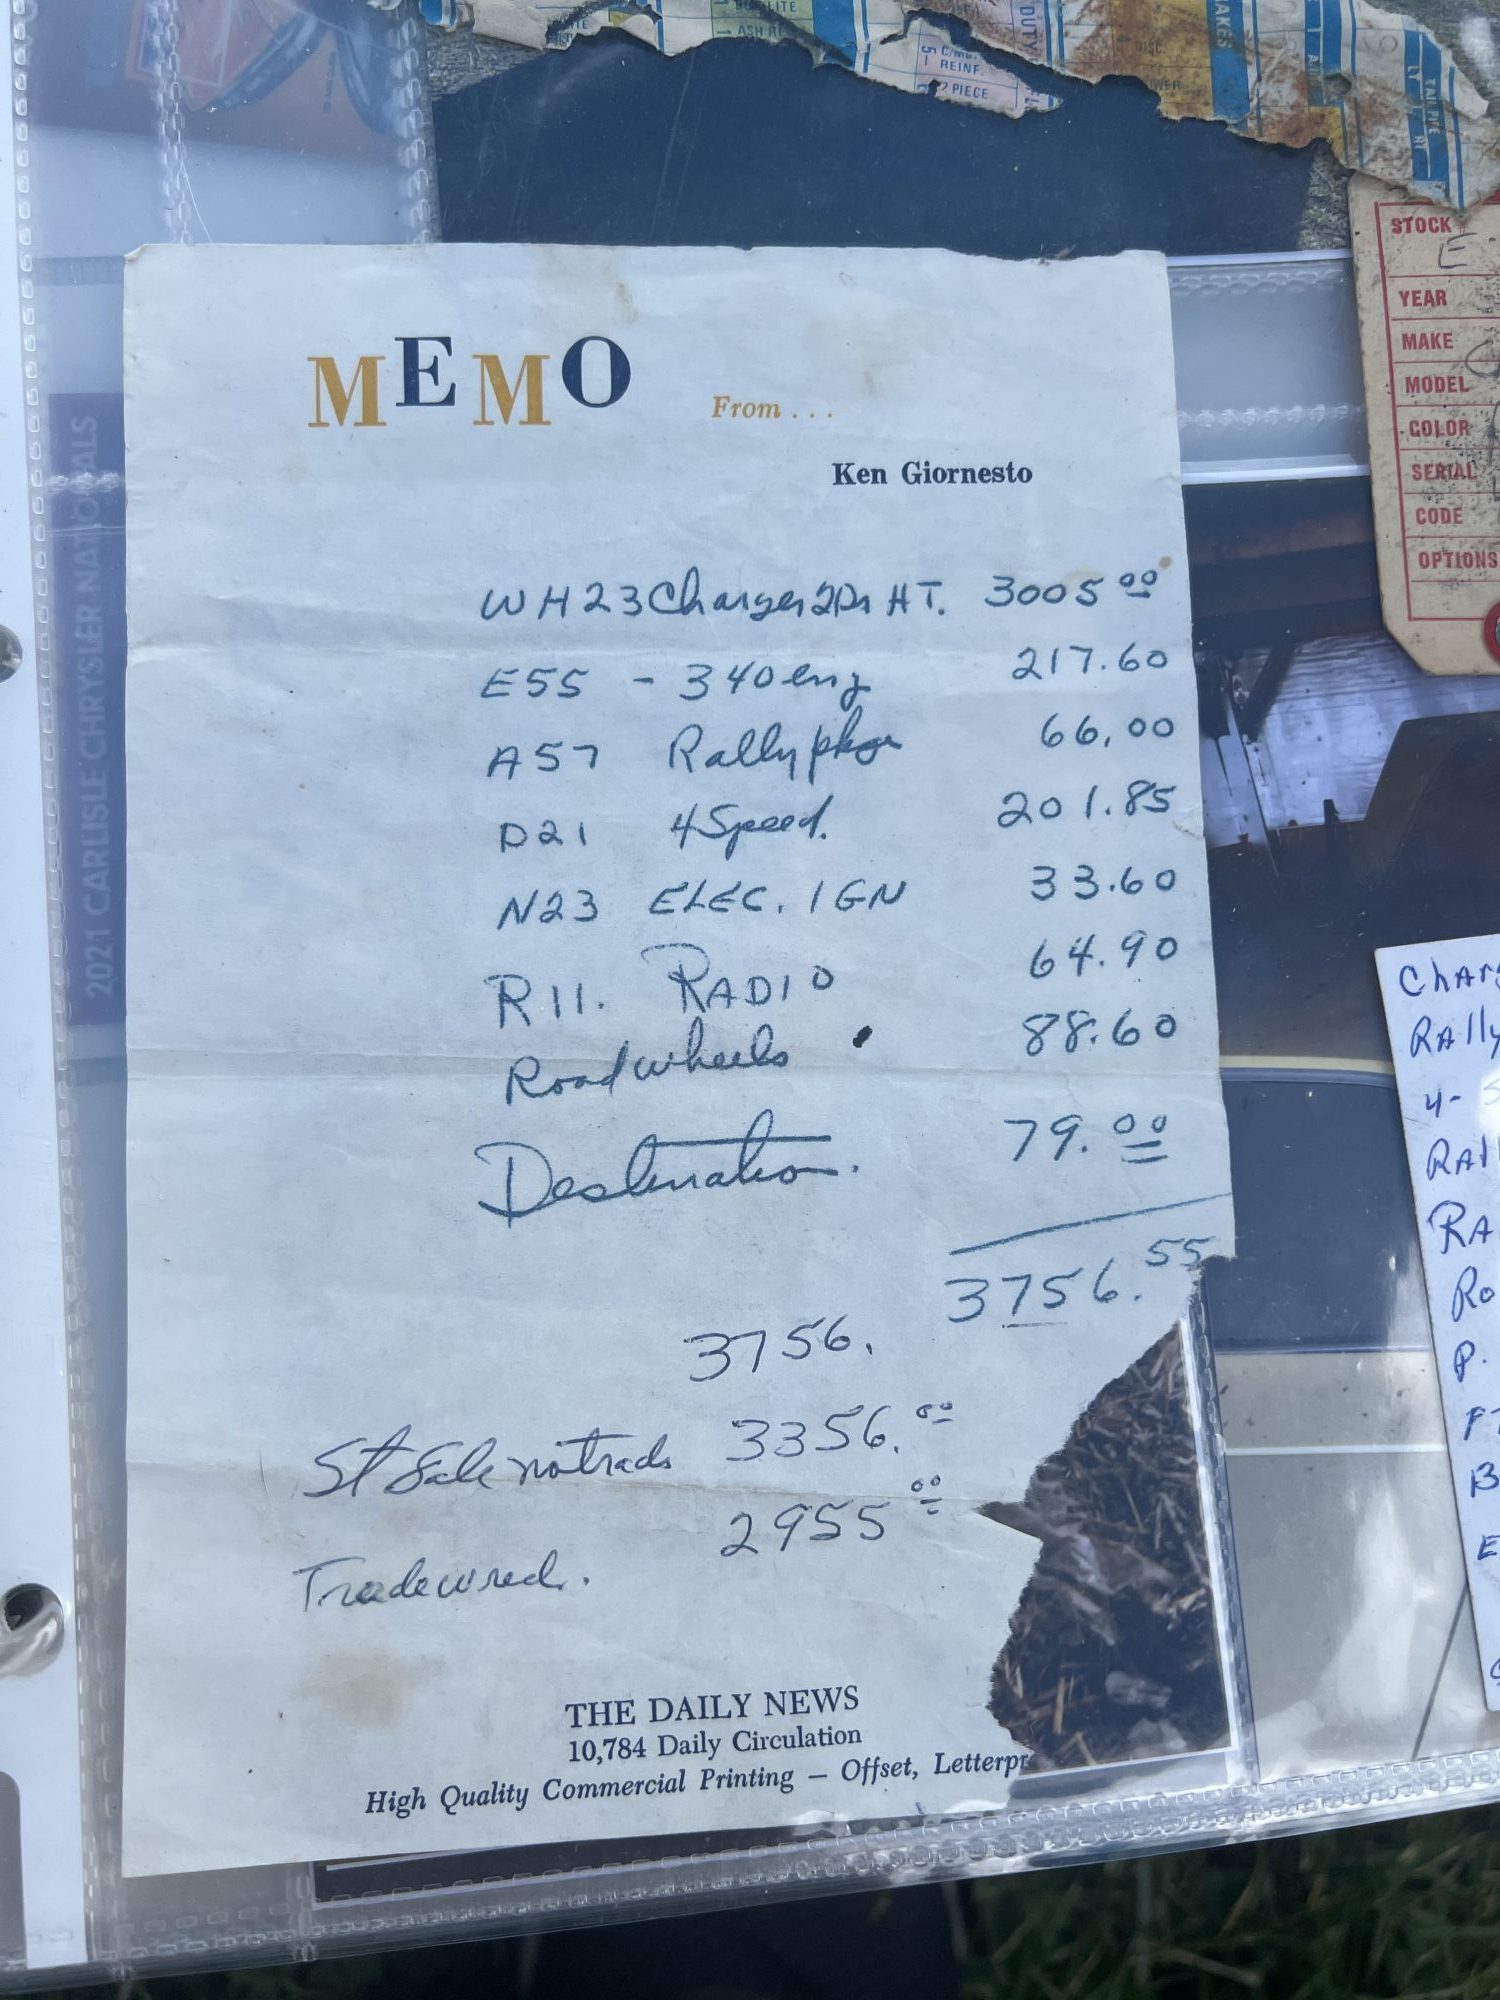 MEMO From . . .
Ken Giornesto
WH23 Charger 2Dr HT. 3005 00
E55 - 340 eng 217.60
A57 Rally pkge 66.00
D21 4 Speed. 201.85
N23 ELEC. IGN 33.60
R11. RADIO 64.90
Road wheels 88.60
Destination. 79.00
3756.55
3756.
St Sale no trade 3356.00
2955 00
Trade wrech.
THE DAILY NEWS
10,784 Daily Circulation
High Quality Commercial Printing — Offset, Letterpr
2021 CARLISLE CHRYSLER NATIONALS
ASH RE
REINF.
2 PIECE
DUTY
TAILPIPE
LT RT
STOCK E
YEAR
MAKE
MODEL
COLOR
SERIAL
CODE
OPTIONS
Char
Rally
4-
Rall
RA
Ro
P.
B
E